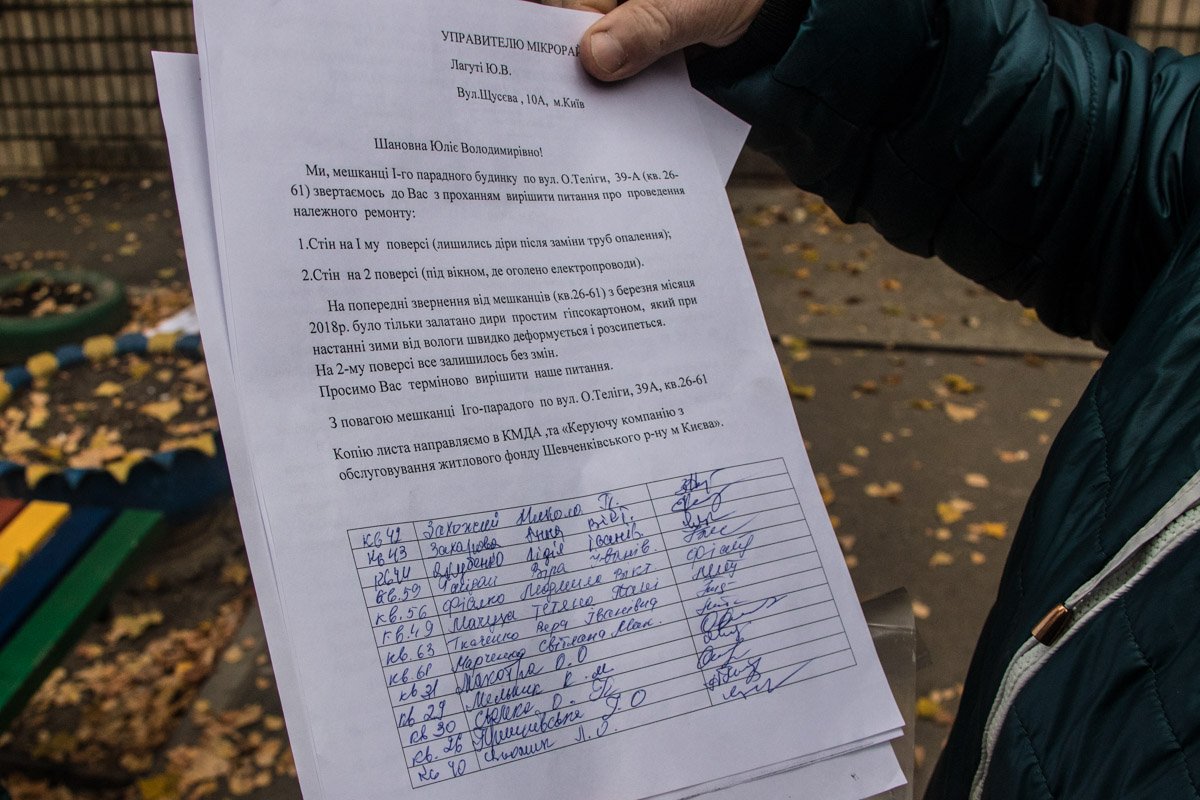 УПРАВИТЕЛЮ МІКРОРАЙ
Лагуті Ю.В.
Вул.Щусєва , 10А, м.Київ
Шановна Юліє Володимирівно!
Ми, мешканці І-го парадного будинку по вул. О.Теліги, 39-А (кв. 26-
61) звертаємось до Вас з проханням вирішити питання про проведення
належного ремонту:
1.Стін на І му поверсі (лишились діри після заміни труб опалення);
2.Стін на 2 поверсі (під вікном, де оголено електропроводи).
На попередні звернення від мешканців (кв.26-61) з березня місяця
2018р. було тільки залатано дири простим гіпсокартоном, який при
настанні зими від вологи швидко деформується і розсипеться.
На 2-му поверсі все залишилось без змін.
Просимо Вас терміново вирішити наше питання.
З повагою мешканці Іго-парадого по вул. О.Теліги, 39А, кв.26-61
Копію листа направляємо в КМДА ,та «Керуючу компанію з
обслуговування житлового фонду Шевченківського р-ну м Києва».
кв 42 Захожий Микола П.
кв 43 Захарова Анна Вікт.
кв 44 Лідія Іванів.
кв.59 Віра Іванів.
кв.56 Фіалко Людмила Вікт
кв.49 Махуца Тетяна
кв.63 Ткаченко Вера Іванівна
кв.61 Марченко Світлана Мик.
кв 31 Махотра О.О
кв 29 Мельник К.М.
кв 30 О.
кв.26 Г.О
кв 40 Л.О.